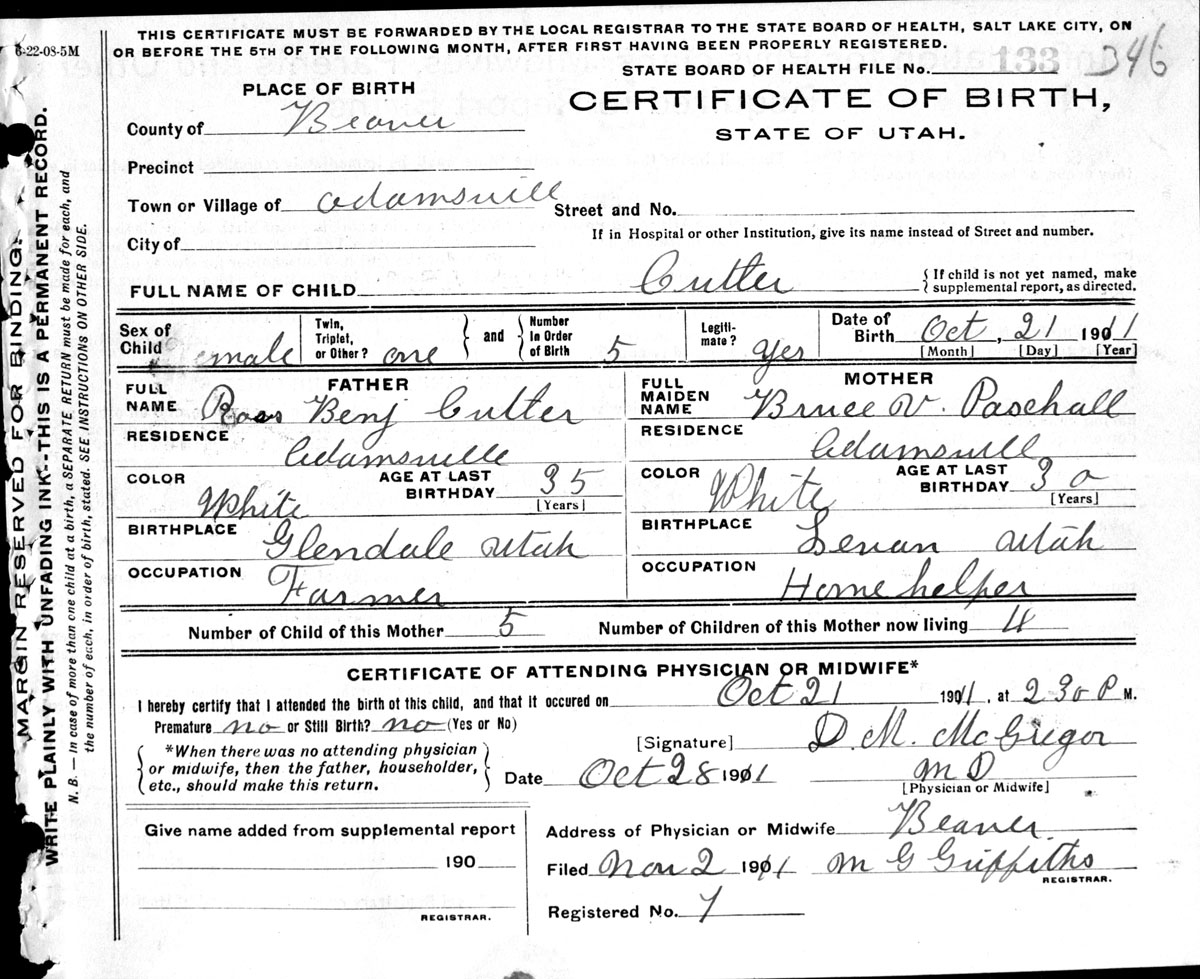 THIS CERTIFICATE MUST BE FORWARDED BY THE LOCAL REGISTRAR TO THE STATE BOARD OF HEALTH, SALT LAKE CITY, ON
OR BEFORE THE 5TH OF THE FOLLOWING MONTH, AFTER FIRST HAVING BEEN PROPERLY REGISTERED.
-22-08-5M
STATE BOARD OF HEALTH FILE No. 133 346
PLACE OF BIRTH
CERTIFICATE OF BIRTH,
STATE OF UTAH.
County of Beaver
Precinct
Town or Village of Adamsvill
Street and No.
City of
If in Hospital or other Institution, give its name instead of Street and number.
FULL NAME OF CHILD Cutler
If child is not yet named, make
supplemental report, as directed.
Sex of Child male
Twin, Triplet, or Other? one
and Number In Order of Birth 5
Legiti-mate? yes
Date of Birth Oct, 21 1911
[Month] [Day] [Year]
FATHER
FULL NAME Benj Cutler
RESIDENCE
Adamsville
COLOR White
AGE AT LAST BIRTHDAY 35
[Years]
BIRTHPLACE Glendale Utah
OCCUPATION Farmer
MOTHER
FULL MAIDEN NAME Bruce V. Paschall
RESIDENCE
Adamsvill
COLOR White
AGE AT LAST BIRTHDAY 30
[Years]
BIRTHPLACE Levan Utah
OCCUPATION Home helper
Number of Child of this Mother 5 Number of Children of this Mother now living 4
CERTIFICATE OF ATTENDING PHYSICIAN OR MIDWIFE*
I hereby certify that I attended the birth of this child, and that it occured on Oct 21 1911, at 230 P M.
Premature no or Still Birth? no (Yes or No)
[Signature] D. M. McGregor
*When there was no attending physician
or midwife, then the father, householder,
etc., should make this return.
Date Oct 28 1911 M D
[Physician or Midwife]
Give name added from supplemental report
190
REGISTRAR.
Address of Physician or Midwife Beaver
Filed Nov 2 1911 M G Griffiths
REGISTRAR.
Registered No. 7
MARGIN RESERVED FOR BINDING.
WRITE PLAINLY WITH UNFADING INK--THIS IS A PERMANENT RECORD.
N. B. — In case of more than one child at a birth, a SEPARATE RETURN must be made for each, and
the number of each, in order of birth, stated. SEE INSTRUCTIONS ON OTHER SIDE.